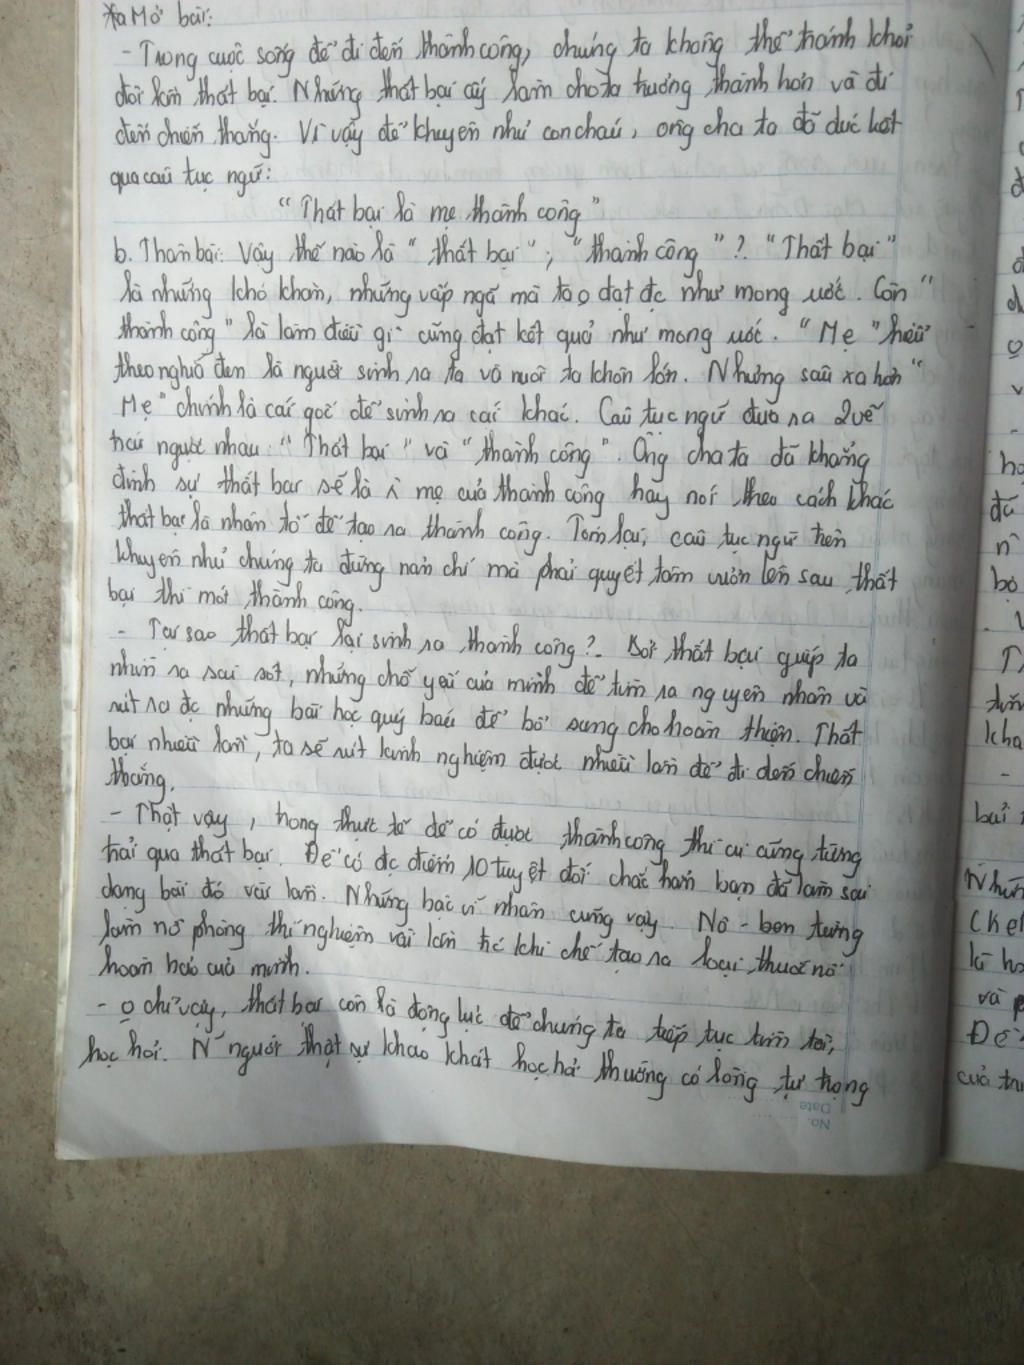 *a Mở bài:
- Trong cuộc sống để đi đến thành công, chúng ta không thể tránh khỏi
đôi lần thất bại. Những thất bại ấy làm cho ta trưởng thành hơn và đi
đến chiến thắng. Vì vậy để khuyên nhủ con cháu, ông cha ta đã đúc kết
qua câu tục ngữ:
"Thất bại là mẹ thành công"
b. Thân bài: Vậy thế nào là "thất bại"; "thành công"? "Thất bại"
là những khó khăn, những vấp ngã mà ta o đạt đc như mong ước. Còn "
thành công" là làm điều gì cũng đạt kết quả như mong ước. "Mẹ" hiểu
theo nghĩa đen là người sinh ra ta và nuôi ta khôn lớn. Nhưng sâu xa hơn "
Mẹ" chính là cái gốc để sinh ra cái khác. Câu tục ngữ đưa ra 2 vế
trái ngược nhau: "Thất bại" và "thành công". Ông cha ta đã khẳng
định sự thất bại sẽ là mẹ của thành công hay nói theo cách khác
thất bại là nhân tố để tạo ra thành công. Tóm lại, câu tục ngữ trên
khuyên nhủ chúng ta đừng nản chí mà phải quyết tâm vươn lên sau thất
bại thì mới thành công.
- Tại sao thất bại lại sinh ra thành công? Bởi thất bại giúp ta
nhìn ra sai sót, những chỗ yếu của mình để tìm ra nguyên nhân và
rút ra đc những bài học quý báu để bổ sung cho hoàn thiện. Thất
bại nhiều lần, ta sẽ rút kinh nghiệm được nhiều lần để đi đến chiến
thắng.
- Thật vậy, trong thực tế để có được thành công thì ai cũng từng
trải qua thất bại. Để có đc điểm 10 tuyệt đối chắc hẳn bạn đã làm sai
dạng bài đó vài lần. Những bậc vĩ nhân cũng vậy. Nô-ben từng
làm nổ phòng thí nghiệm vài lần trc khi chế tạo ra loại thuốc nổ
hoàn hảo của mình.
- o chỉ vậy, thất bại còn là động lực để chúng ta tiếp tục tìm tòi,
học hỏi. N~ người thật sự khao khát học hỏi thường có lòng tự trọng
No.
Date